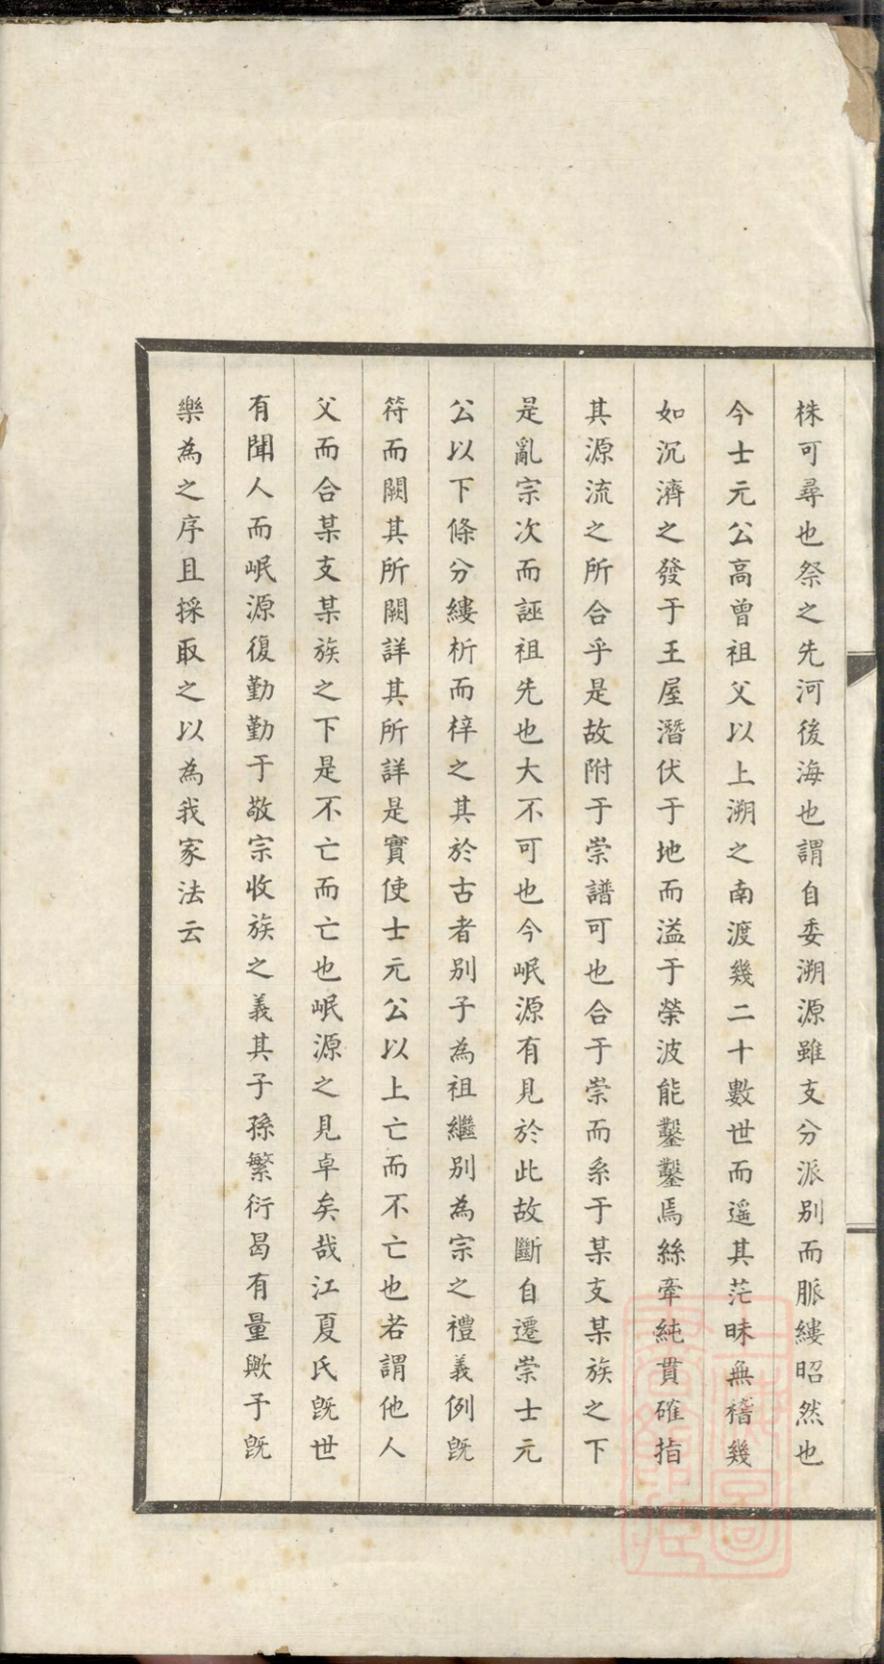 株可尋也祭之先河後海也謂自委溯源雖支分派別而脈縷昭然也
今士元公高曾祖父以上溯之南渡幾二十數世而遥其茫昧無稽幾
如沉濟之發于王屋潛伏于地而溢于榮波能鑿鑿焉絲牽純貫確指
其源流之所合乎是故附于崇譜可也合于崇而系于某支某族之下
是亂宗次而誣祖先也大不可也今岷源有見於此故斷自遷崇士元
公以下條分縷析而梓之其於古者别子為祖繼别為宗之禮義例既
符而闕其所闕詳其所詳是實使士元公以上亡而不亡也若謂他人
父而合某支某族之下是不亡而亡也岷源之見卓矣哉江夏氏既世
有聞人而岷源復勤勤于敬宗收族之義其子孫繁衍曷有量歟予既
樂為之序且採取之以為我家法云